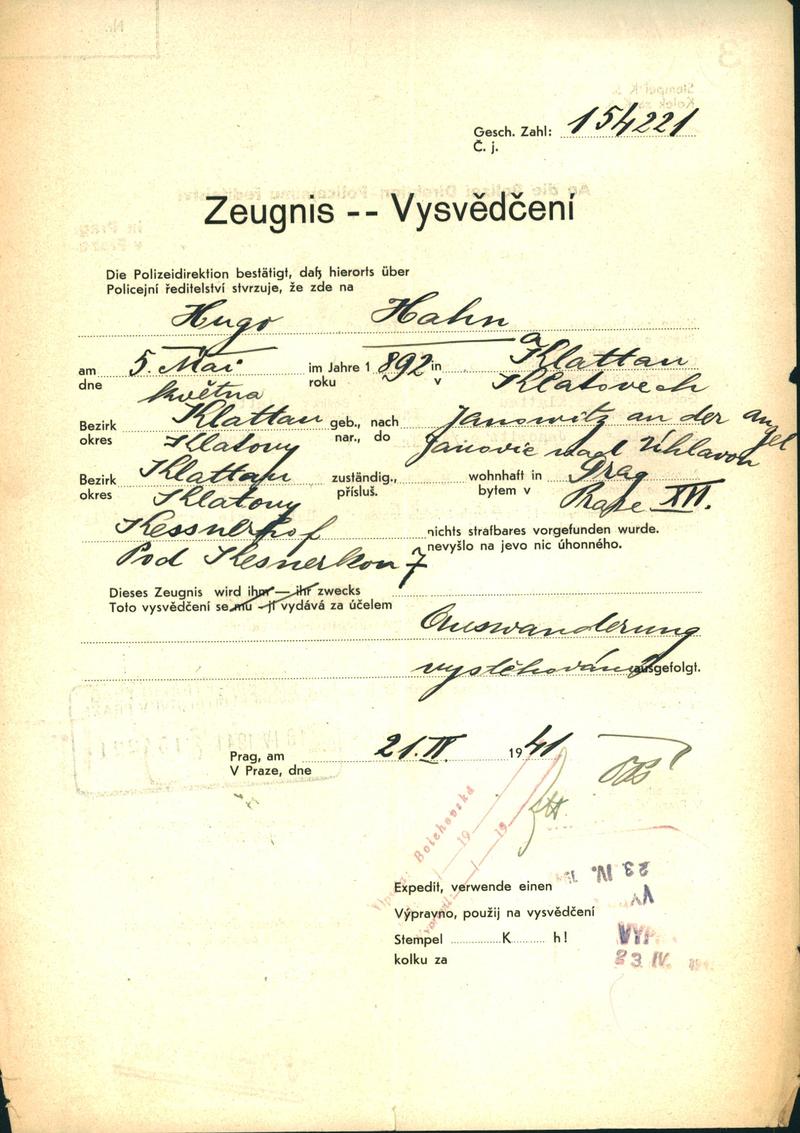 Gesch. Zahl: 154221
Č. j.
Zeugnis -- Vysvědčení
Die Polizeidirektion bestätigt, daß hierorts über
Policejní ředitelství stvrzuje, že zde na
Hugo Hahn
am 5. Mai im Jahre 1 892 in Klattau
dne května roku v Klatovech
Bezirk Klattau geb., nach Janowitz an der Angel
okres Klatovy nar., do Janovic nad Úhlavou
Bezirk Klattau zuständig., wohnhaft in Prag
okres Klatovy přísluš. bytem v Praze XII.
Kessnerhof nichts strafbares vorgefunden wurde.
Pod Kesnerkou 7 nevyšlo na jevo nic úhonného.
Dieses Zeugnis wird ihm — ihr zwecks
Toto vysvědčení se mu - jí vydává za účelem
Auswanderung
vystěhování ausgefolgt.
Prag, am 21. IV. 1941
V Praze, dne
Bolehovská
19
19
23. IV.
Expedit, verwende einen
Výpravno, použij na vysvědčení
Stempel K h!
kolku za
23. IV.